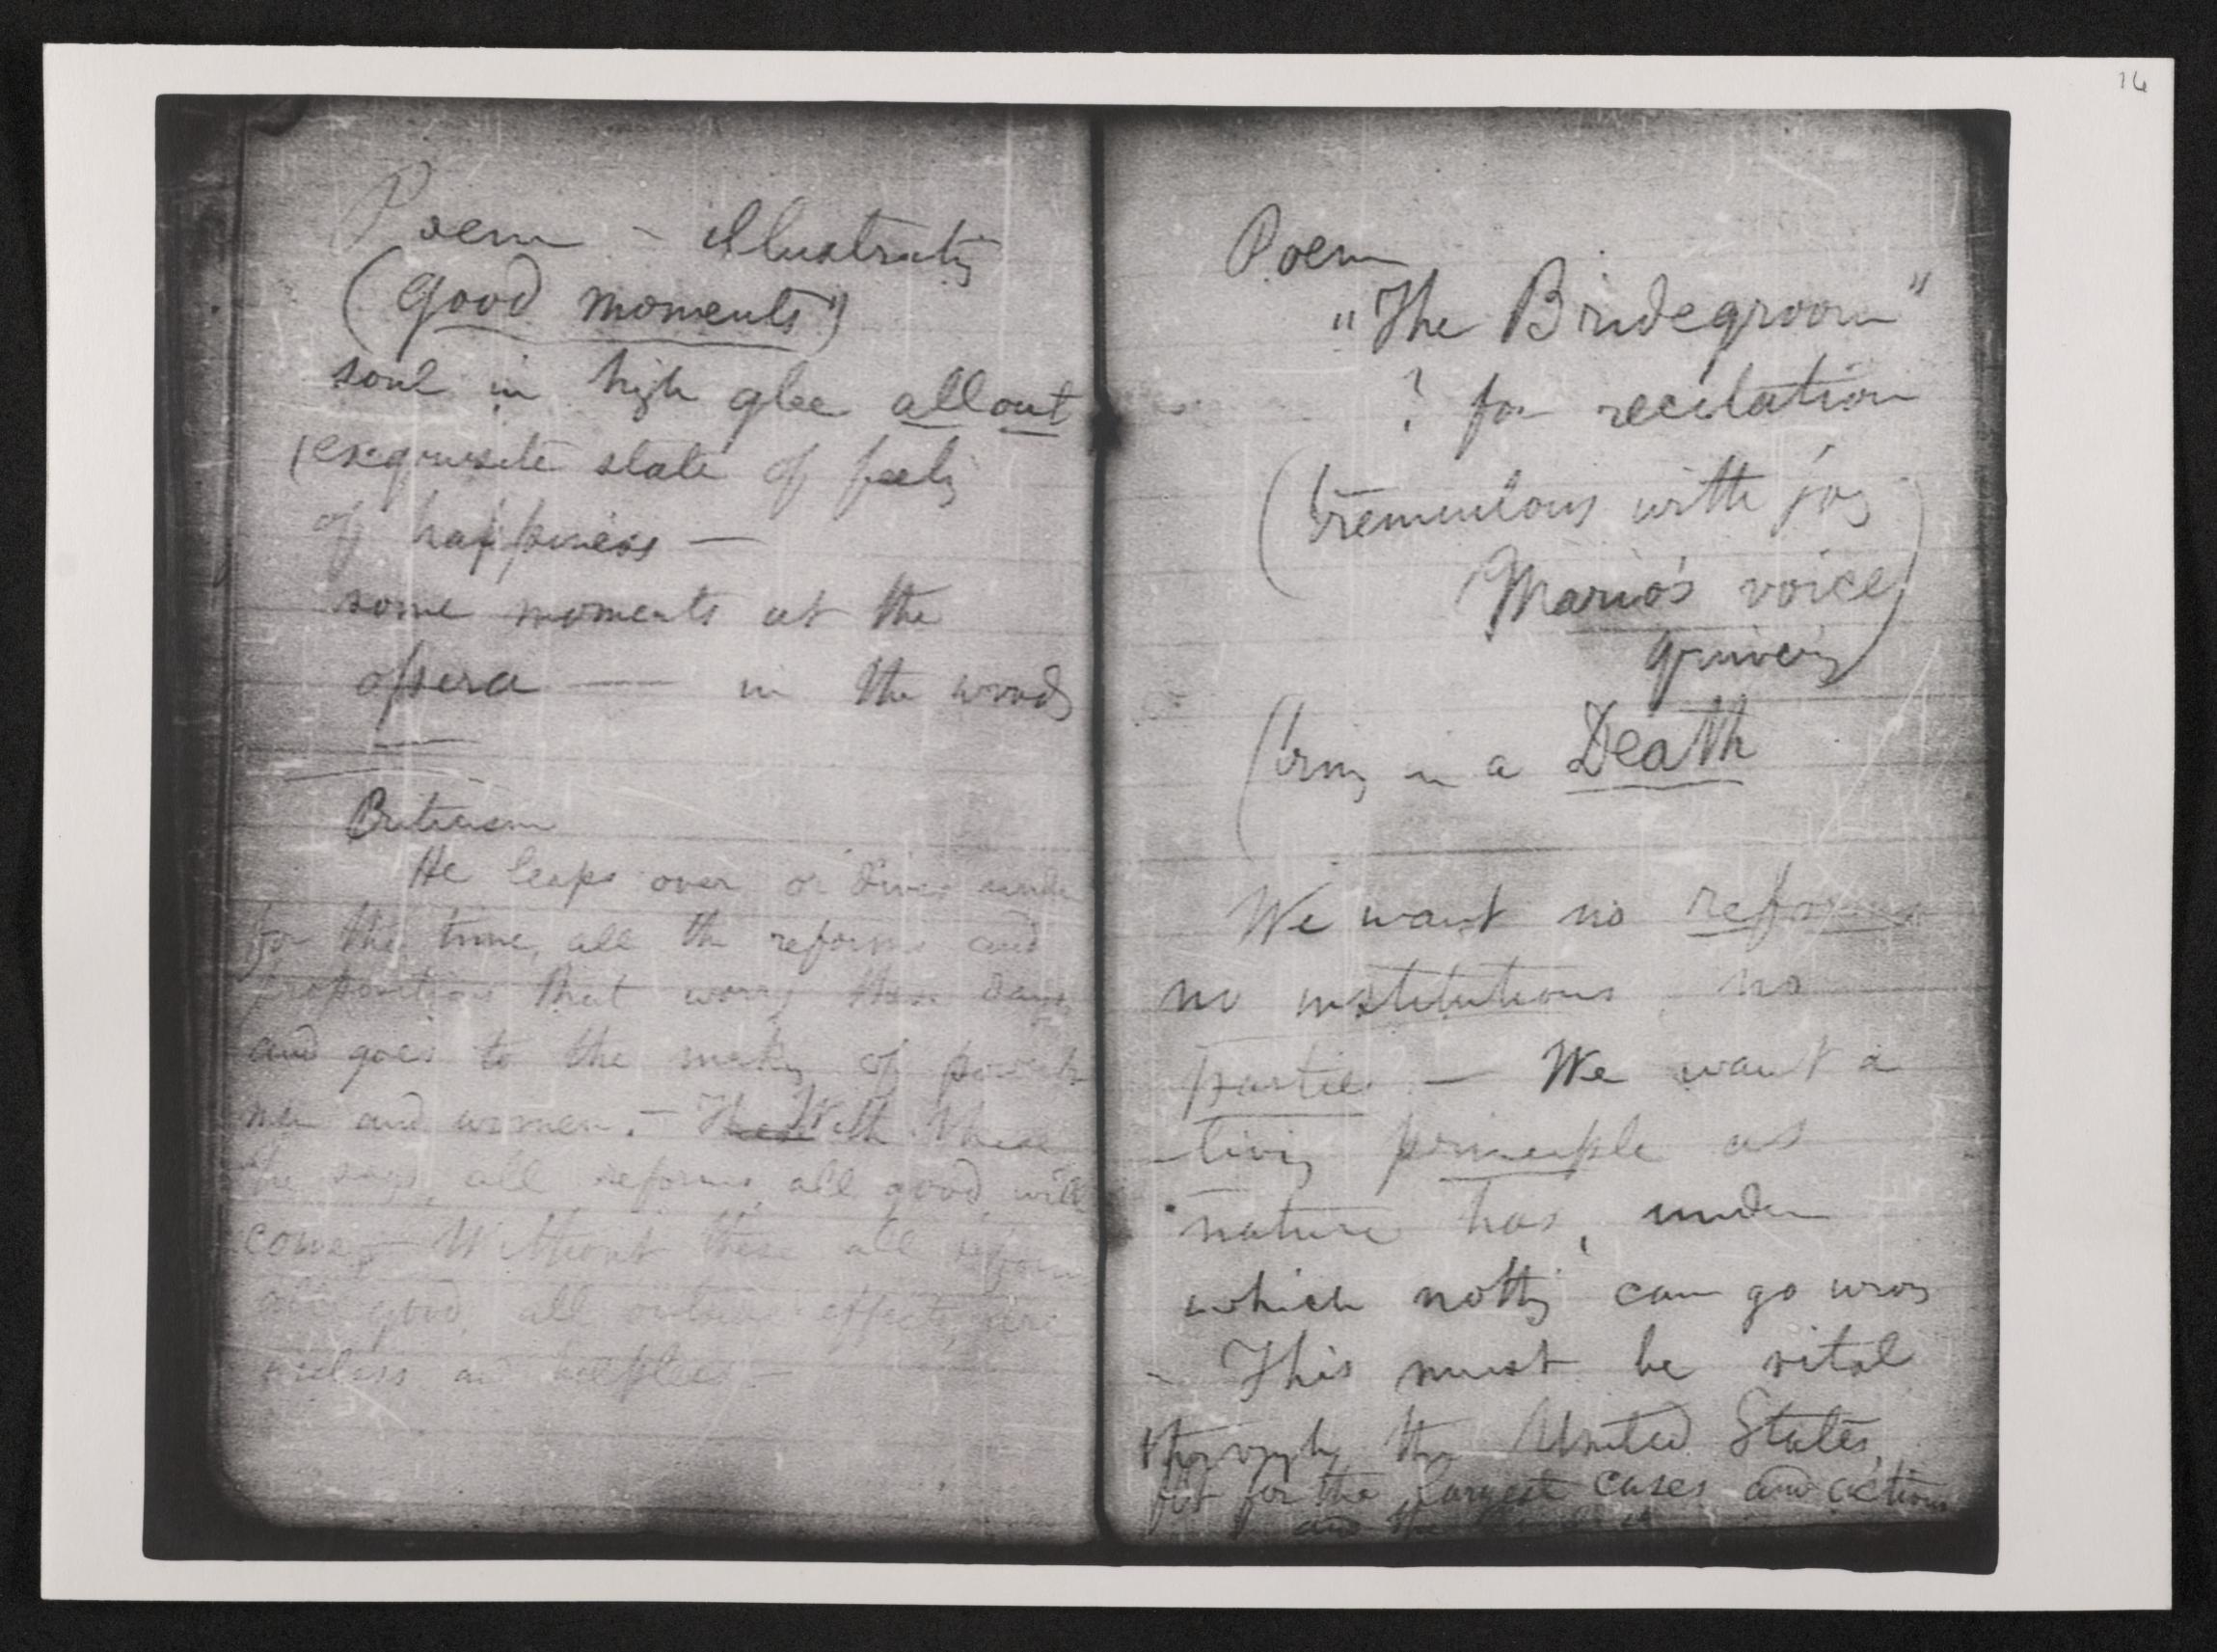 16
Poem – illustrating
(Good moments")
soul in high glee all out
(exquisite state of feeling
of happiness —
some moments at the
opera — in the woods
Criticism
He leaps over or dives under
for the time, all the reforms and
propositions that worry these days
and goes to the making of powerful
men and women. – These With these
he says, all reforms, all good, will
come. – Without these all reforms
all good, all outside effects, are
useless and helpless –
Poem
"The Bridegroom"
? for recitation
(tremulous with joy
Mario's voice
quivering)
(bring in a Death
We want no reforms
no institutions no
parties – We want a
living principle as
nature has, under
which nothing can go wrong
– This must be vital
through the United States,
fit for the largest cases and actions
and the